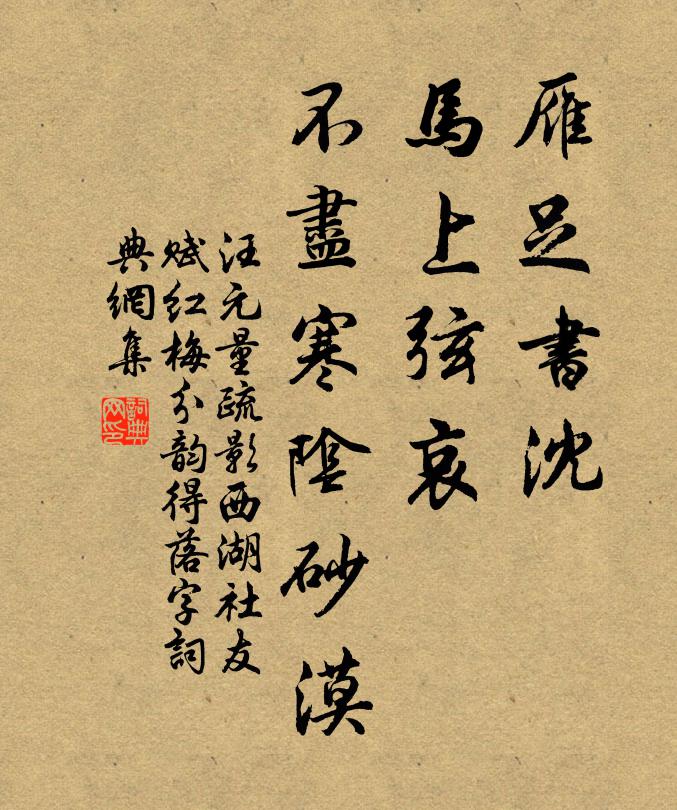 雁足書沈
馬上弦哀
不盡寒陰砂漠
汪元量疏影西湖社友
賦紅梅分韵得落字詞
典網集
詞典网印